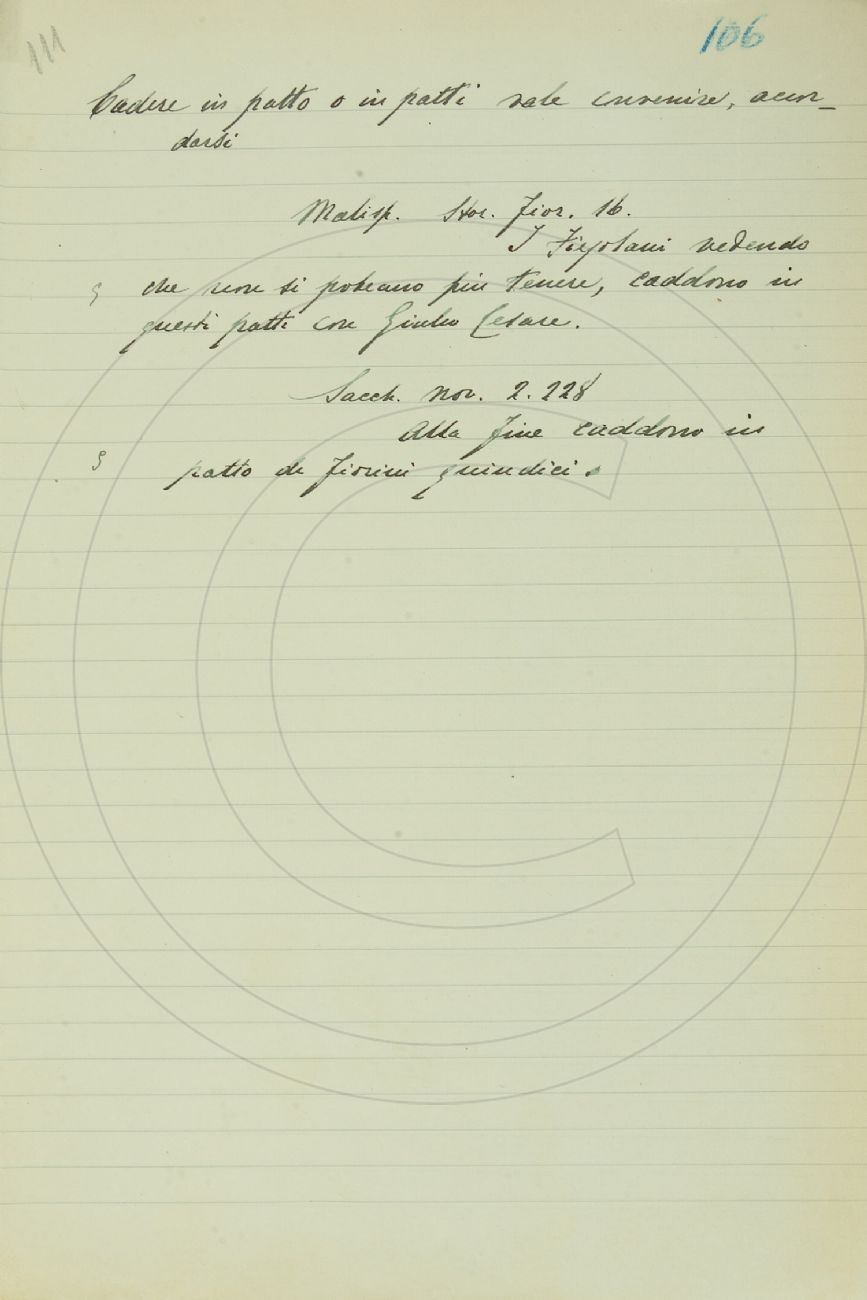 111
106
Cadere in patto o in patti vale convenire, accor-
darsi
Malisp. Stor. Fior. 16.
I Fiesolani vedendo
che non si poteano più tenere, caddono in
questi patti con Giulio Cesare.
Sacch. nov. 2. 228
Alla fine caddono in
patto di fiorini quindici.